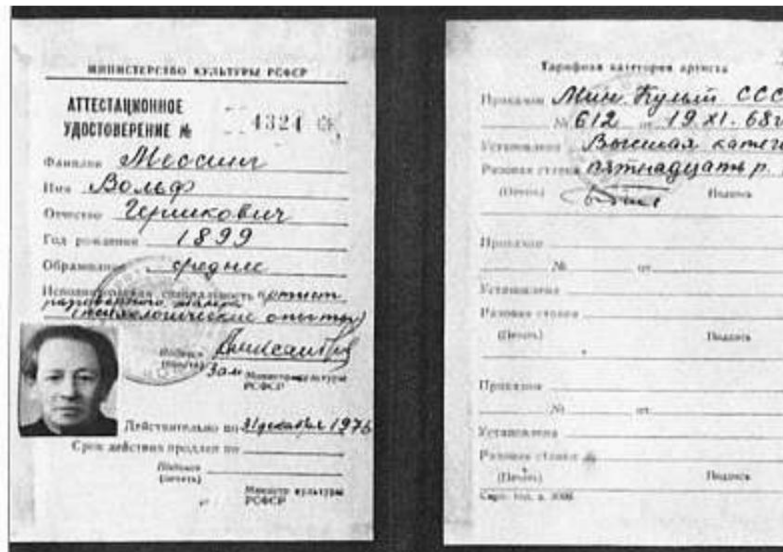 МИНИСТЕРСТВО КУЛЬТУРЫ РСФСР
АТТЕСТАЦИОННОЕ
УДОСТОВЕРЕНИЕ № 4324
Фамилия Мессинг
Имя Вольф
Отчество Гершкович
Год рождения 1899
Образование среднее
Исполнительская специальность артист
разговорного жанра
(психологические опыты)
Подпись
(печать)
Зам Министр культуры
РСФСР
Действительно по 31 декабря 1976
Срок действия продлен по
Подпись
(печать)
Министр культуры
РСФСР
Тарифная категория артиста
Приказом Мин. Культ СССР
№ 612 от 19.XI.68г
Установлена Высшая катего
Разовая ставка пятнадцать р.
(Печать) Подпись
Приказом
№ от
Установлена
Разовая ставка
(Печать) Подпись
Приказом
№ от
Установлена
Разовая ставка
(Печать) Подпись